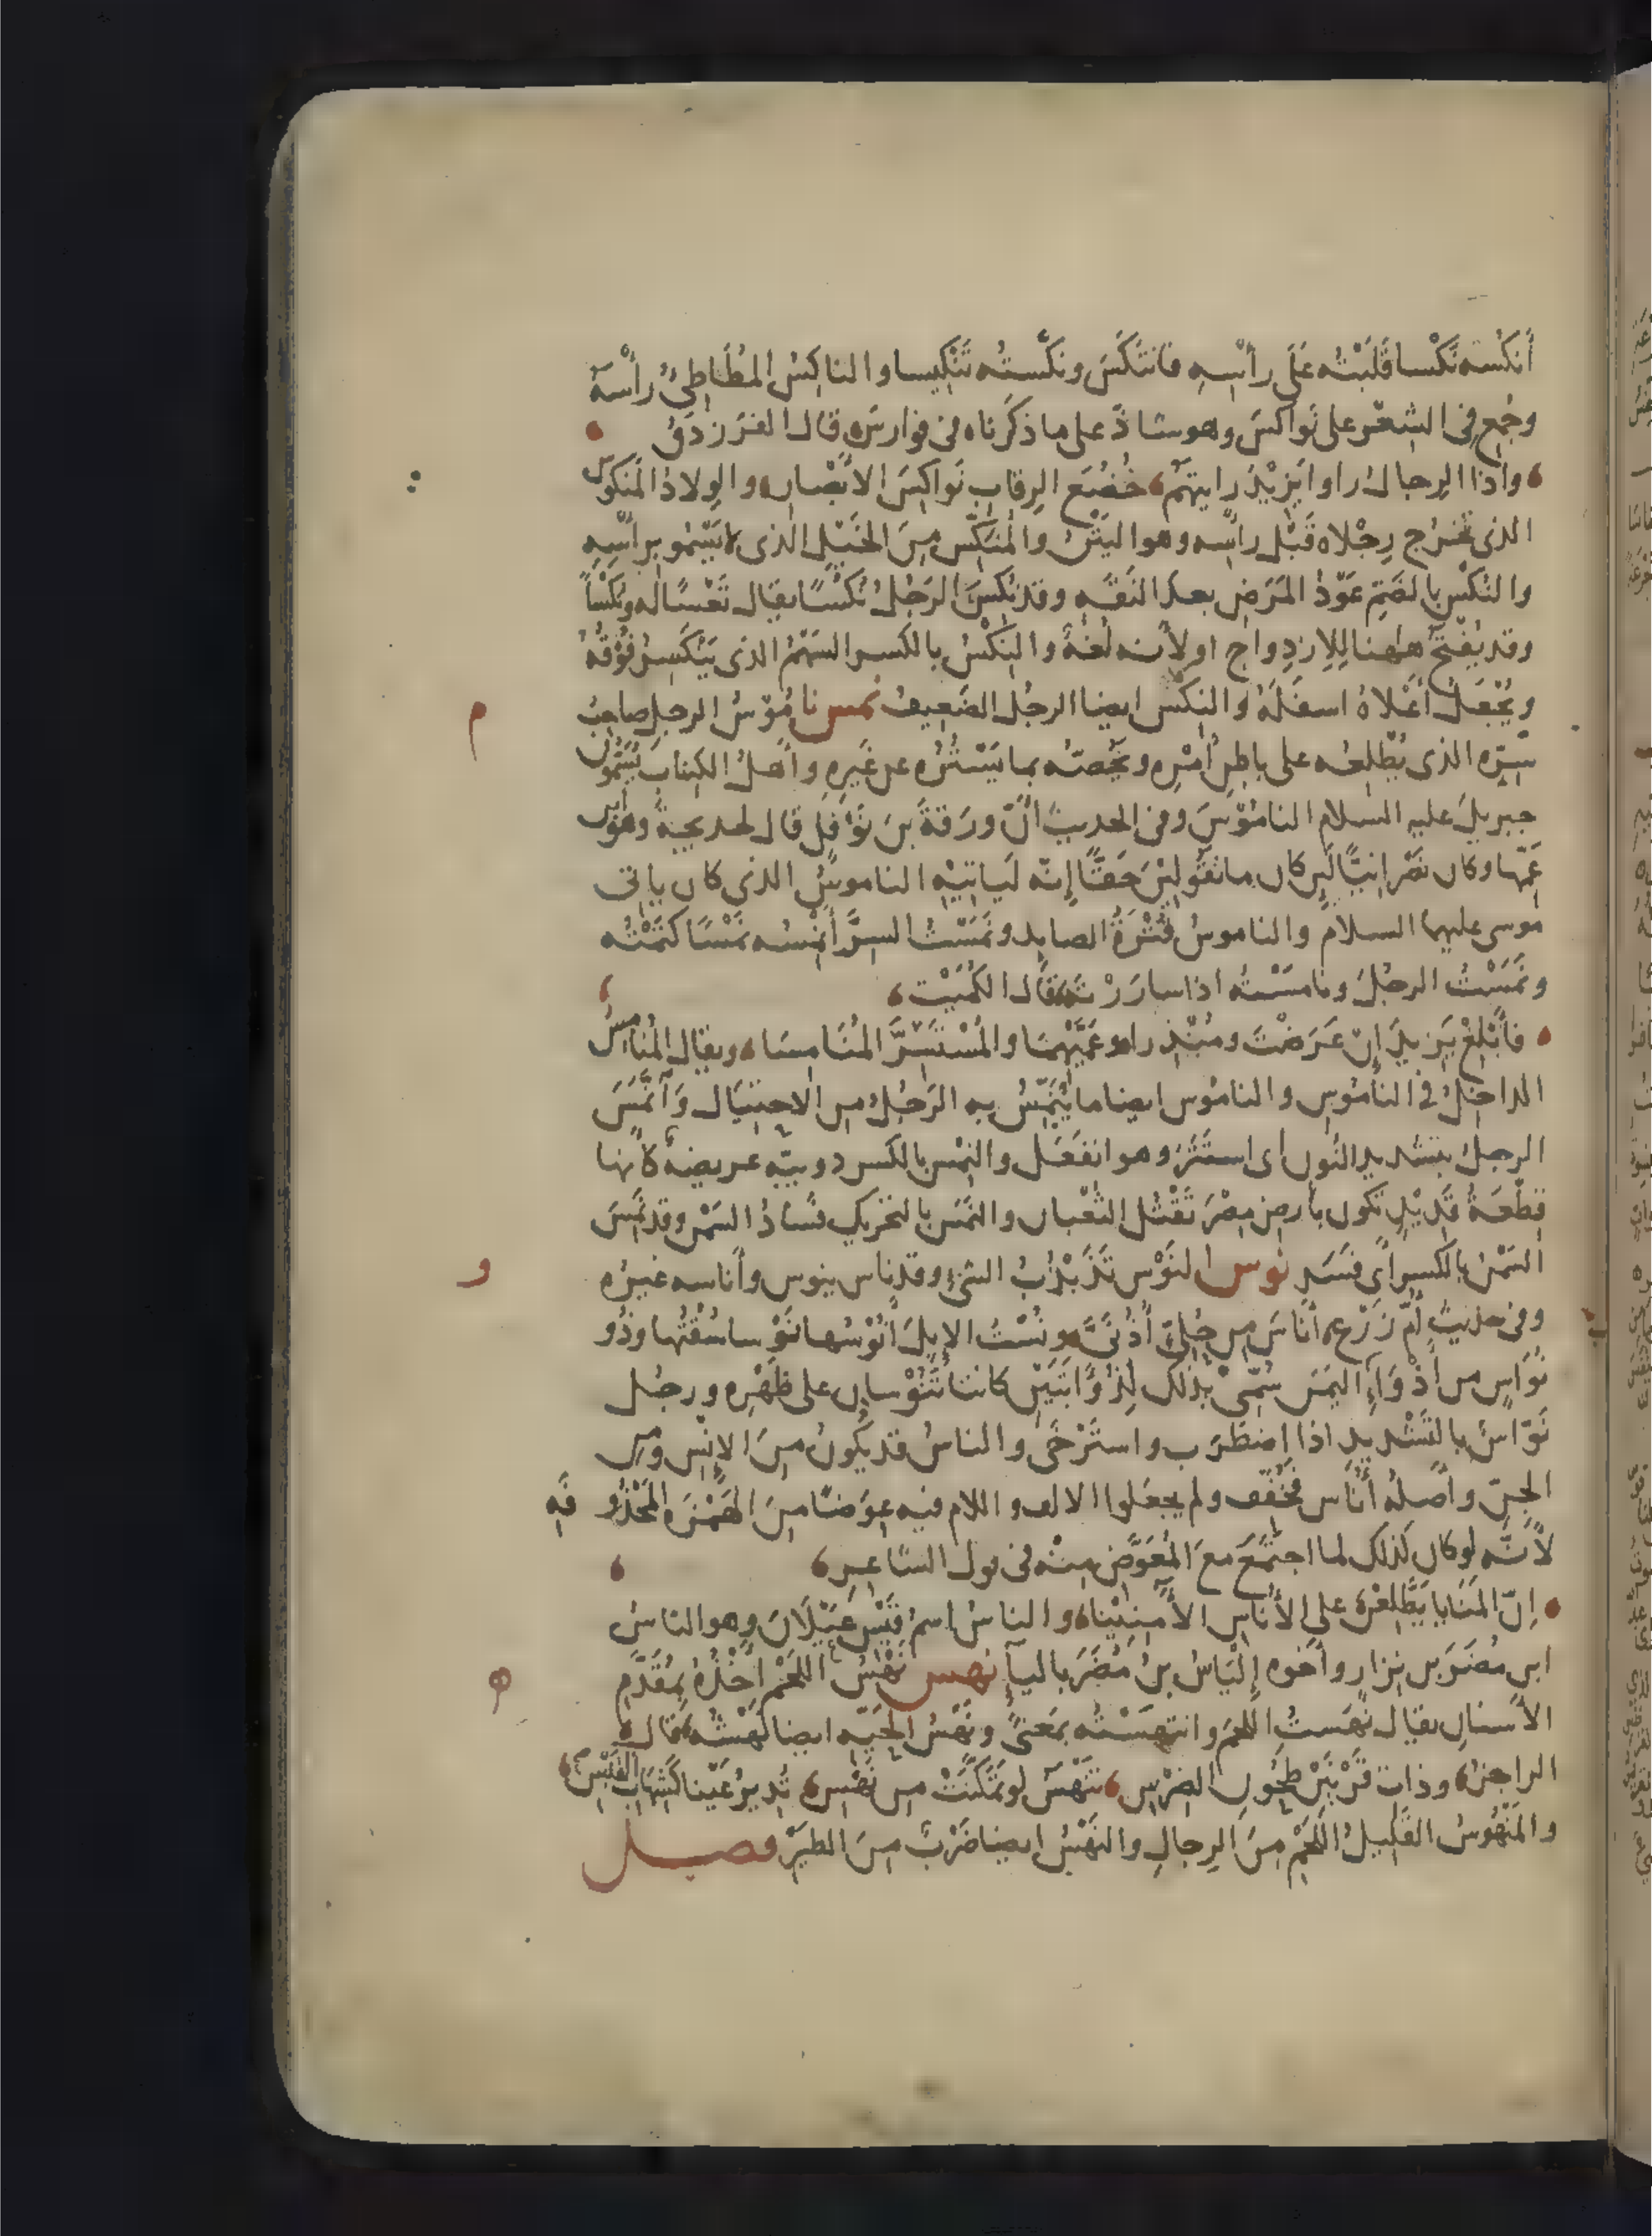 أَنْكُسُه نَكْسا قَلَبْتُه عَلَى رأْسِهِ فانتَكَسَ ونكَّستُه تَنْكِيسا والناكِسُ المُطَأطِئُ رأْسَهُ
وجُمِع فِي الشِعْر على نَواكسَ وهو شاذّ على ما ذكرناه فى فوارس قال الفَرَزْدَقُ
واذا الرِجالُ راوا يَزِيْدَ رايتَهُمْ خُضُعَ الرِقابِ نَواكِسَ الاَبْصارِ والوِلادُ المَنكُوسُ
الذى تَخرُج رِجْلاه قَبْل رأسِه وهو اليَتْنُ والمُنَكِّس مِنَ الخَيْلِ الذى لا يَسْمُو بِرأسِهِ
والنُكْس بالضَمّ عَوْدُ المَرَضِ بعد النَقَهِ وقد نُكِسَ الرَجُلُ نُكْسًا يقال تَعْسًا له ونُكْساً
وقد يُفْتَحُ هاهنا لِلاِزدِواج او لأنه لُغةٌ والنِكْسُ بالكسر السَهْمُ الذى يَنْكَسِرُ فُوْقُهُ
ويُجْعَلُ أَعْلاهُ اسفَلَهُ والنِكْس ايضا الرجُل الضَعِيفُ نمس نامُوْسُ الرجلِ صاحِبُ
سِرّه الذى يُطْلِعُه على باطِنِ أمْرِهِ ويَخُصّه بما يَسْتُرُه عن غَيرِه وأَهلُ الكِتاب يُسَمُّون
جبريلَ عليه السلام النامُوْسَ وفى الحديث أنّ ورَقةَ بنَ نَوْفَلٍ قال لخديجةَ وهو بن
عَمِّها وكان نَصْرانِيًّا لَئِن كان ما تَقُولِيْنَ حَقًّا إنّه لَياتِيْهِ الناموسُ الذى كان ياتى
موسى عليهما السلام والناموسُ قُتْرَةُ الصايِد ونَمَسْتُ السِرَّ أَنْمِسُه نَمْسًا كتَمْتُه
ونَمَسْتُ الرجُلَ ونامَسْتُه اذا سارَرْتَه قال الكُمَيْت
فأَبْلِغْ يَزِيدَ إنْ عَرَضْتَ ومُنْذِرا وعَمَّيْهِما والمُسْتَسِرَّ المُنَامِسَا ويقال المُنَامِسُ
الداخِلُ فى النامُوسِ والنامُوس ايضا ما يُنَمِّسُ به الرَجُلُ من الاحتِيَال وَآنَّمَسَ
الرجلُ بتشديد النُون أى استَتَرَ وهو انفَعَل والنِمْس بالكسر دويبّه عريضه كأنها
قِطْعَةُ قَدِيْدٍ تَكون بأرض مِصْرَ تَقْتُل الثُعْبان والنَمَس بالتحريك فَسادُ السَمْن وقد نَمِسَ
السَمْنُ بالكسر أى فسَد نوس النَوْس تَذَبْذُبُ الشَىْءِ وقد ناس ينوس وأَناسه غيرُه
وفى حديث أمّ زَرْعٍ أَناسَ من حُلِىٍّ أُذُنَىَّ ونُسْتُ الإبِلَ أَنُوْسُها نَوْسا سُقْتُها وذُو
نَوَاسٍ من أَذْوَاءِ اليَمَن سُمِّىَ بذلك لِذُؤَابَتَيْنِ كانتا تَنُوْسان على ظَهْرِه ورجُل
نَوّاسٌ بالتَشْديد اذا اضطَرَب واستَرْخَى والناسُ قد يَكُونُ مِنَ الإنْسِ ومن
الجِنّ وأَصلُه أُناس فَخُفِّف ولم يجعَلوا الالف واللام فيه عِوَضًا مِنَ الهَمْزَه المَحْذُوفَهِ
لأنّه لو كان كذلك لما اجتَمَعَ معَ المُعَوَّضِ مِنْه فى قول الشاعِرِ
إنّ المَنَايا يَطَّلِعْنَ على الأُناسِ الأَمِنِيْنا والناسُ اسمُ قَيْسِ عَيْلَانَ وهو الناسُ
ابن مُضَرَ بن نِزار وأخوه إلْيَاسُ بنُ مُضَرَ بالياء نهس نَهْسُ اللَحْمِ أَخْذُهُ بِمُقَدَّمِ
الأسنانِ يقال نَهَستُ اللحمَ وانتهَسْتُه بِمَعنًى ونَهْسُ الحَيّه ايضا نَهْشُه قال
الراجز وذات قَرْنَيْنِ طَحُونِ الضِرْسِ تَنْهَسُ لو تَمَكَّنَتْ مِن نَهْسِ تُدِيرُ عَيْنا كَشِهابِ القَبْسِ
والمَنْهُوسُ القَلِيلُ اللَحْمِ مِنَ الرِجالِ والنُهَسُ ايضا ضَرْبٌ مِنَ الطَيْرِ فصل
م
و
ه